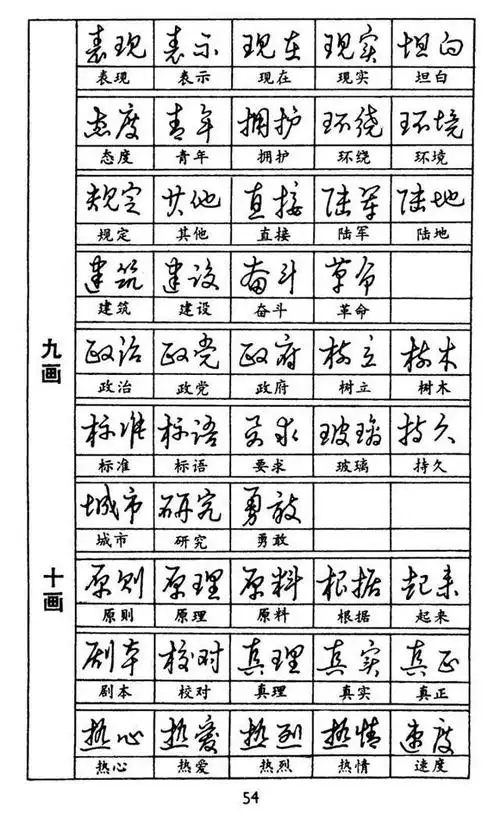 表现 表示 现在 现实 坦白
表现 表示 现在 现实 坦白
态度 青年 拥护 环绕 环境
态度 青年 拥护 环绕 环境
规定 其他 直接 陆军 陆地
规定 其他 直接 陆军 陆地
建筑 建设 奋斗 革命
建筑 建设 奋斗 革命
九画
政治 政党 政府 树立 树木
政治 政党 政府 树立 树木
标准 标语 要求 玻璃 持久
标准 标语 要求 玻璃 持久
城市 研究 勇敢
城市 研究 勇敢
十画
原则 原理 原料 根据 起来
原则 原理 原料 根据 起来
剧本 校对 真理 真实 真正
剧本 校对 真理 真实 真正
热心 热爱 热烈 热情 速度
热心 热爱 热烈 热情 速度
54